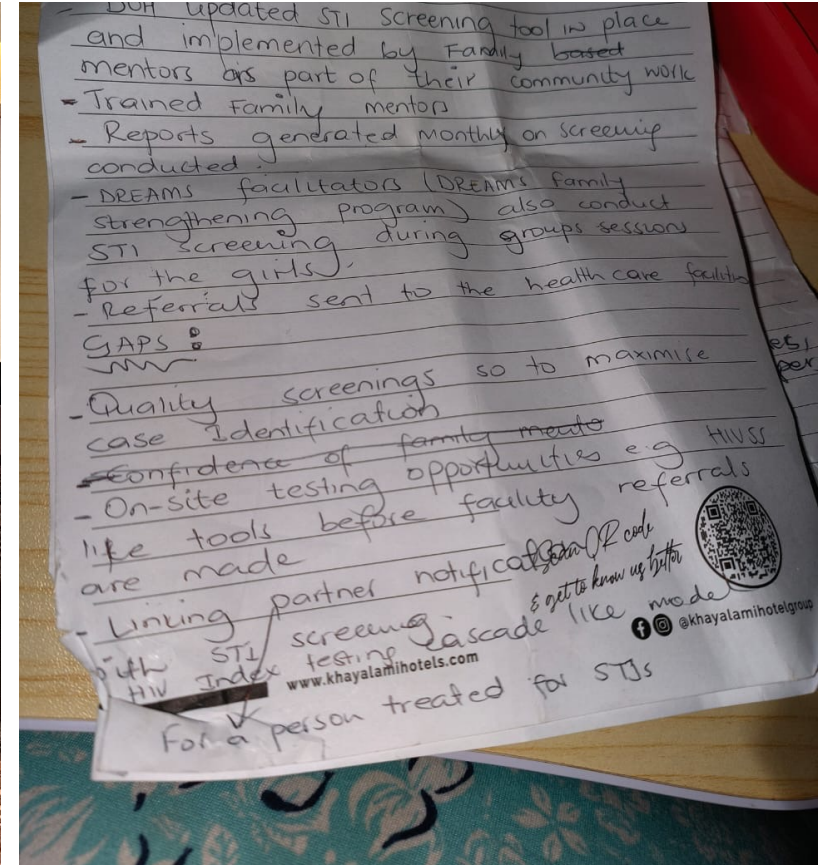 - DOH updated STI screening tool in place
and implemented by Family based
mentors as part of their community work
- Trained Family mentors
- Reports generated Monthly on screening
conducted.
- DREAMS facilitators (DREAMS family
strengthening program) also conduct
STI screening during groups session
for the girls.
- Referrals sent to the health care
GAPS:
- Quality screenings so to maximise
case Identification
- Confidence of family
- On-site testing opportunities e.g HIVSS
like tools before facility referrals
are made
- Linking partner notification
Scan QR code
& get to know us better
with STI screening cascade like model
HIV Index testing
@khayalamihotelgroup
www.khayalamihotels.com
For a person treated for STIs
es,
per